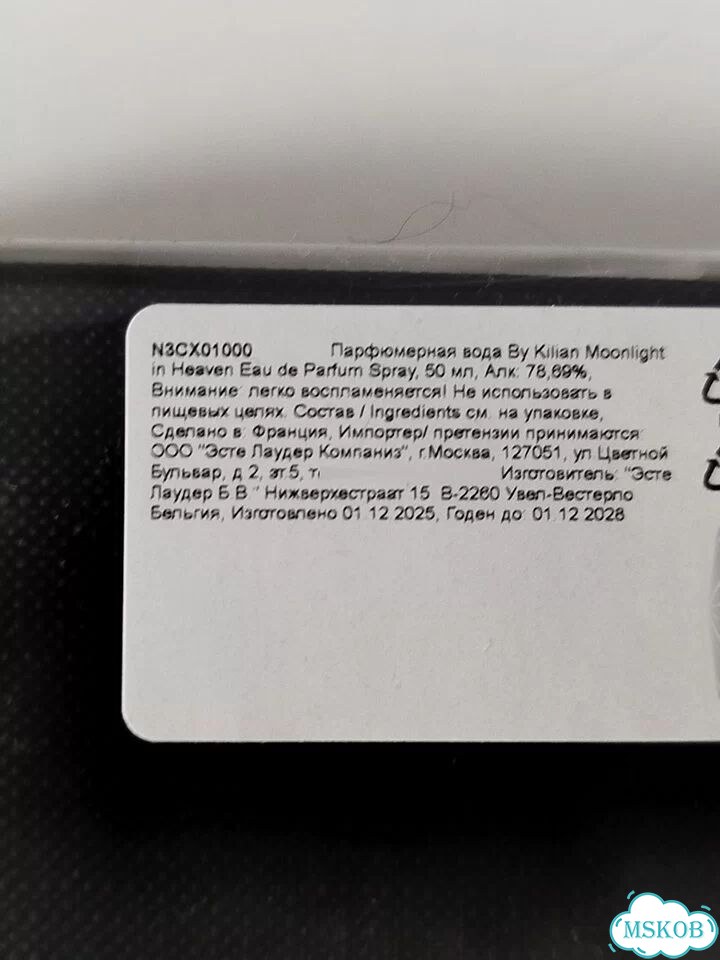 N3CX01000 Парфюмерная вода By Kilian Moonlight
in Heaven Eau de Parfum Spray, 50 мл, Алк: 78,69%,
Внимание: легко воспламеняется! Не использовать в
пищевых целях. Состав / Ingredients см. на упаковке,
Сделано в: Франция, Импортер/ претензии принимаются:
ООО "Эсте Лаудер Компаниз", г.Москва, 127051, ул.Цветной
Бульвар, д.2, эт.5, Изготовитель: "Эсте
Лаудер Б.В." Нижверхестраат 15 В-2260 Увел-Вестерло
Бельгия, Изготовлено 01.12.2025, Годен до: 01.12.2028
MSKOB